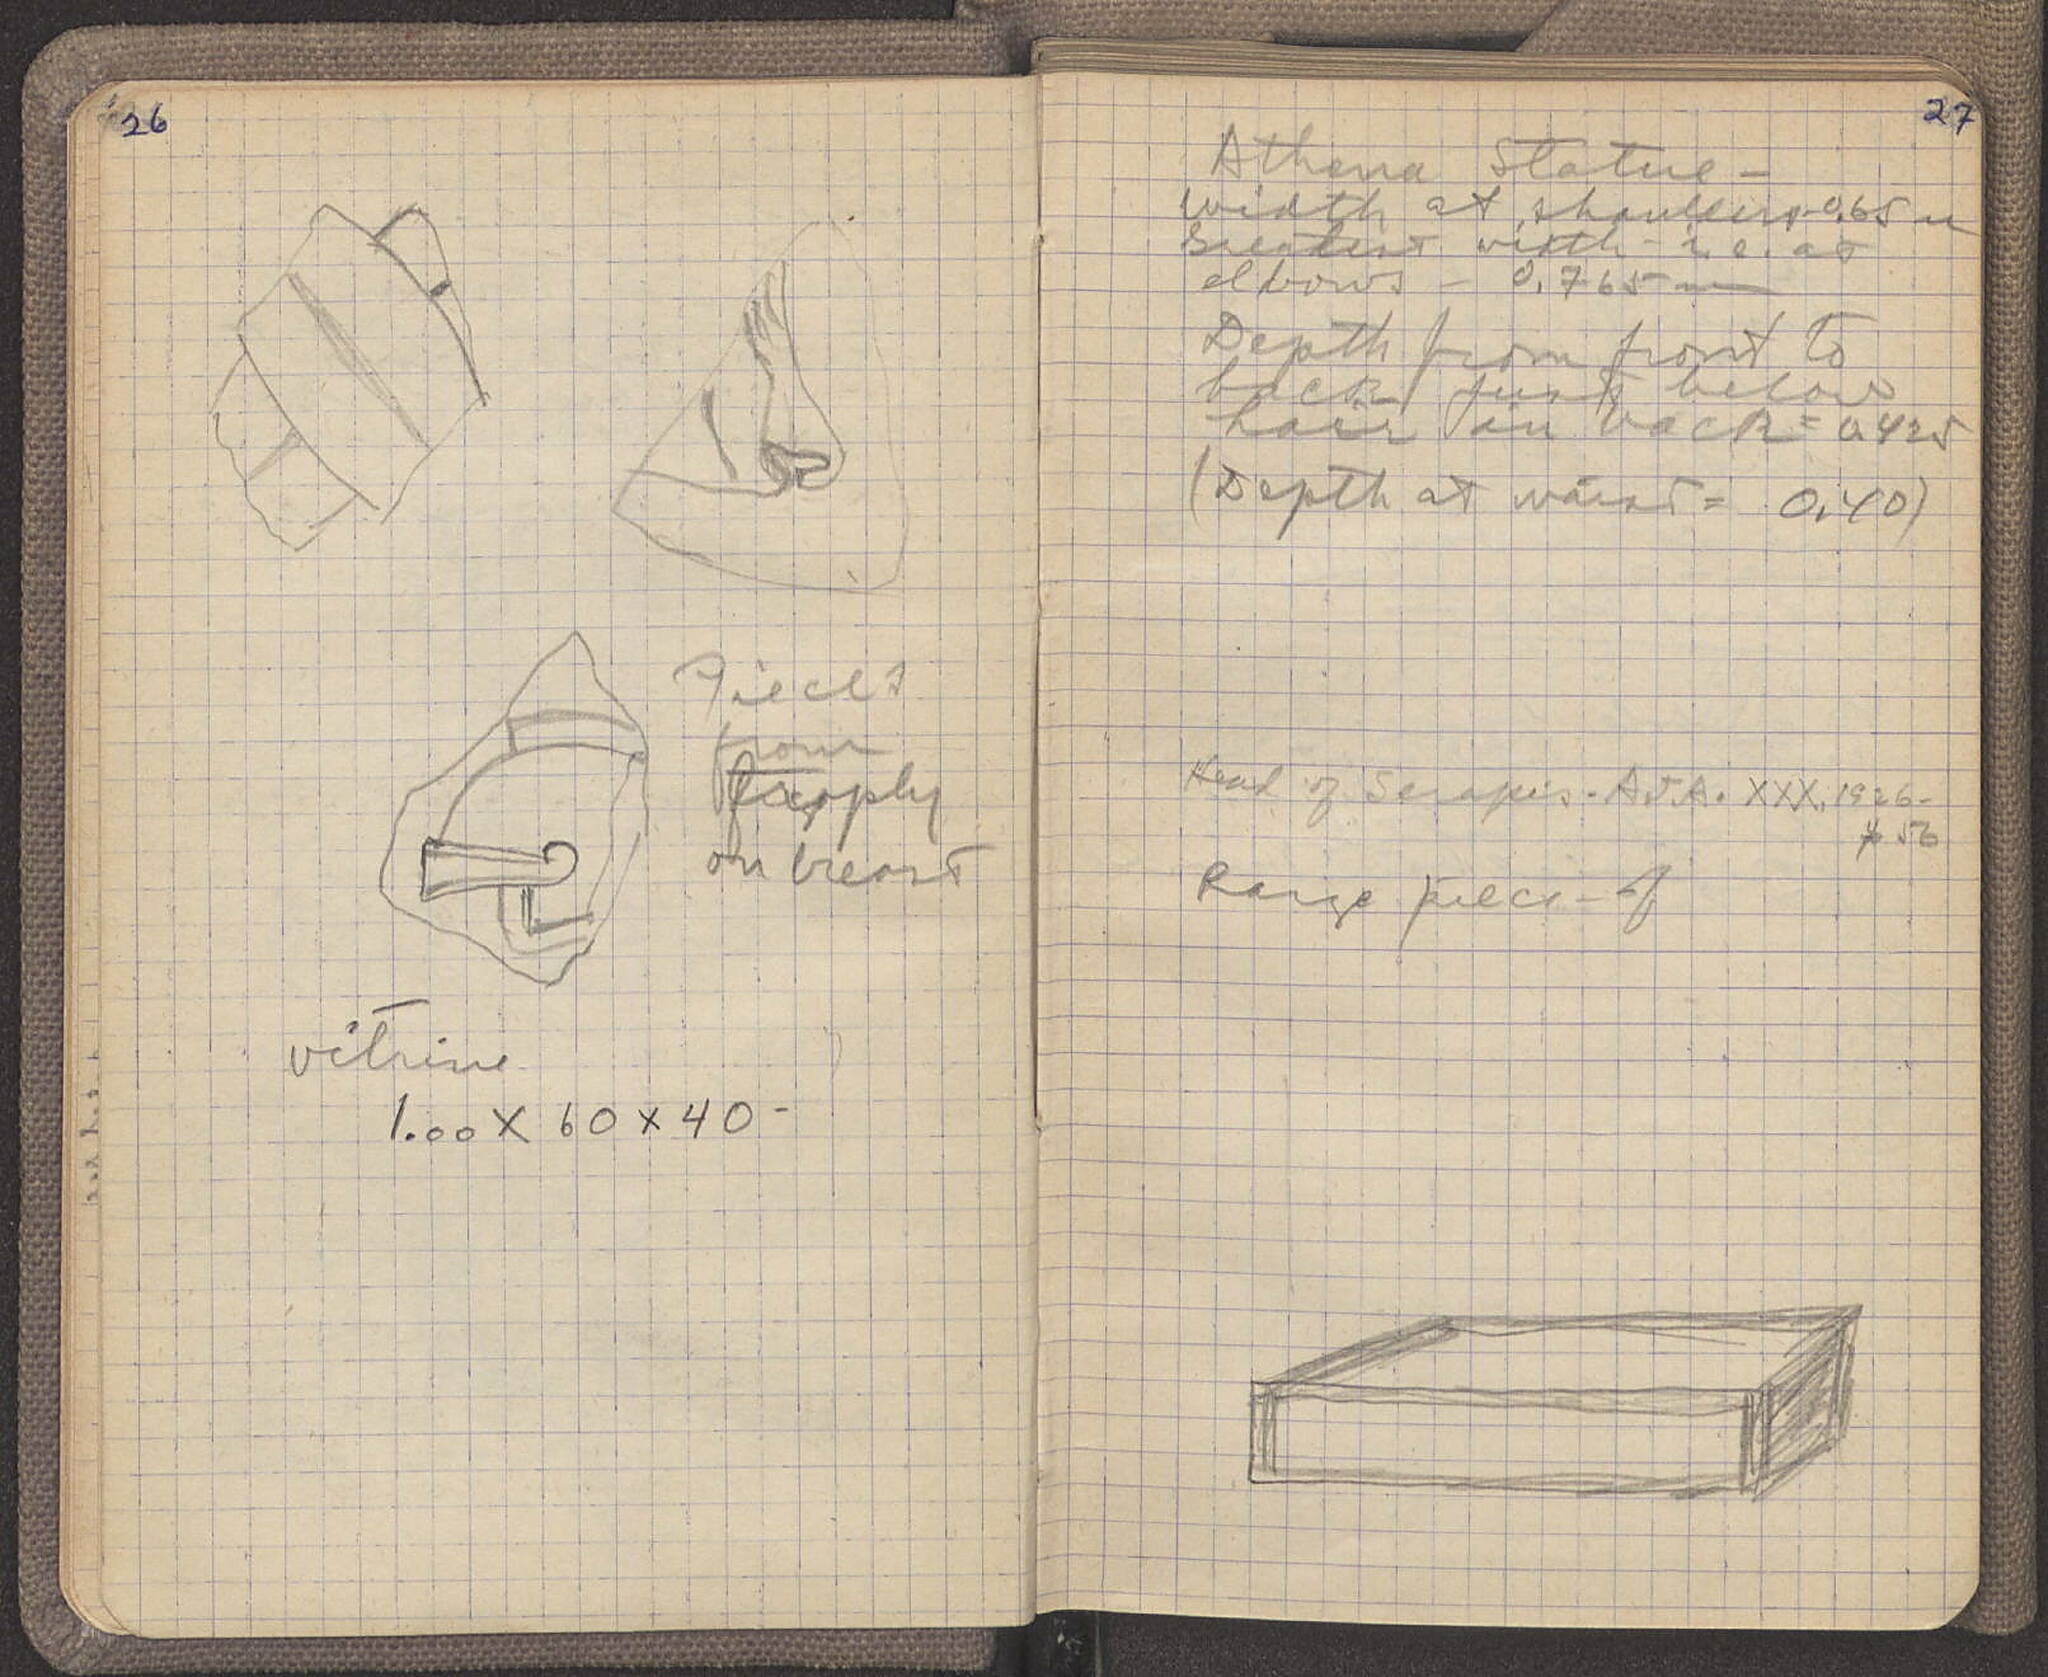 26
Pieces
from
on breast
vitrine
1.00 X 60 X 40 -
27
Athena Statue -
Width at shoulders - 0.65 m
Greatest width - i.e. at
elbows - 0.765 m
Depth from front to
back just below
hair in back = 0.425
(Depth at waist = 0.40)
Head of Serapis. A.J.A. XXX, 1926 -
p 56
Large piece - of